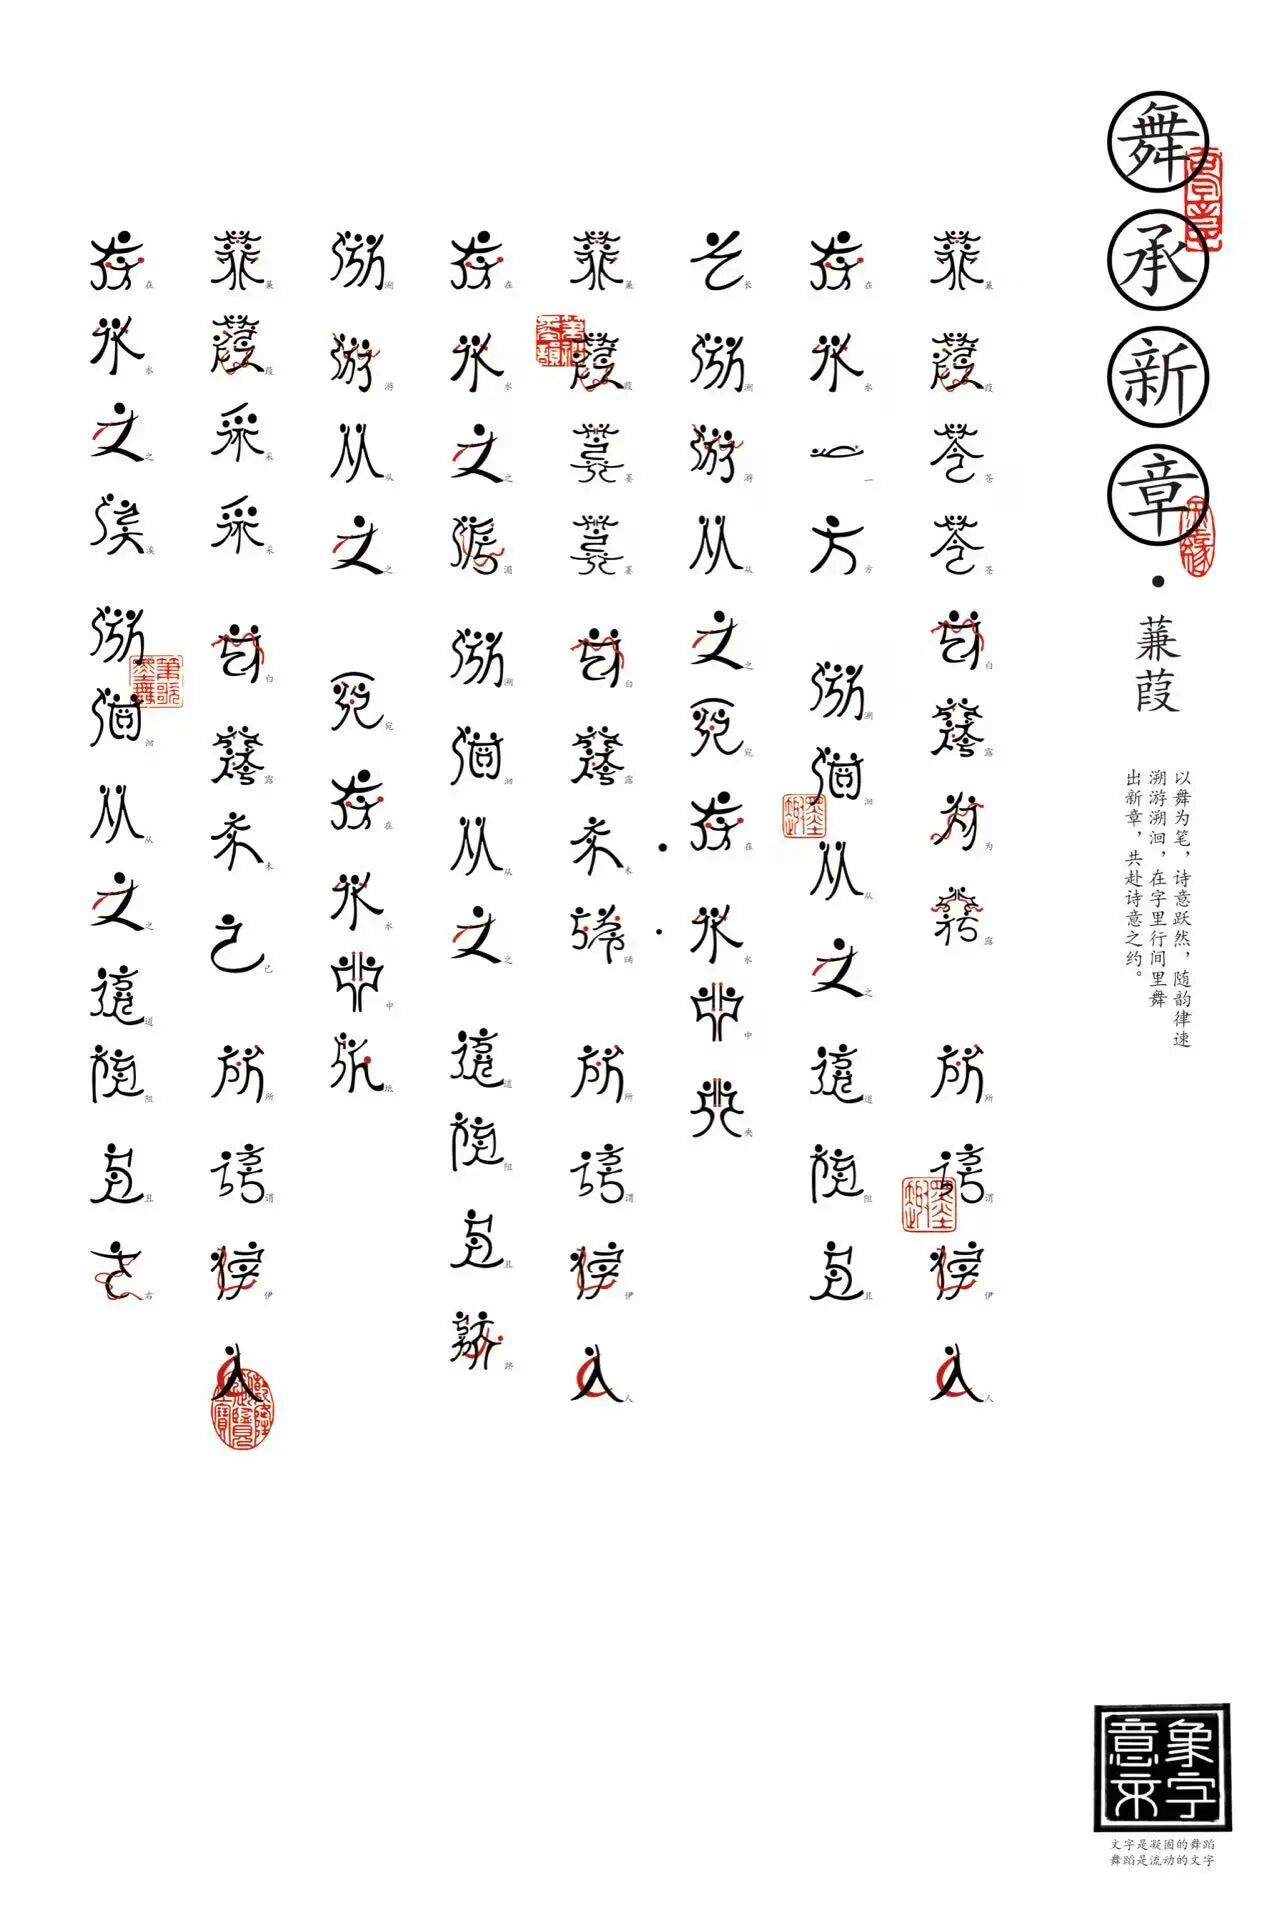 舞承新章·蒹葭
以舞为笔，诗意跃然，随韵律速
溯游溯洄，在字里行间里舞
出新章，共赴诗意之约。
蒹葭苍苍白露为露所谓伊人
在水一方溯洄从之道阻且
长溯游从之宛在水中央
蒹葭萋萋白露未晞所谓伊人
在水之湄溯洄从之道阻且跻
溯游从之宛在水中坻
蒹葭采采白露未已所谓伊人
在水之涘溯洄从之道阻且右
墨趣
墨趣
笔歌墨舞
象字
意来
文字是凝固的舞蹈
舞蹈是流动的文字